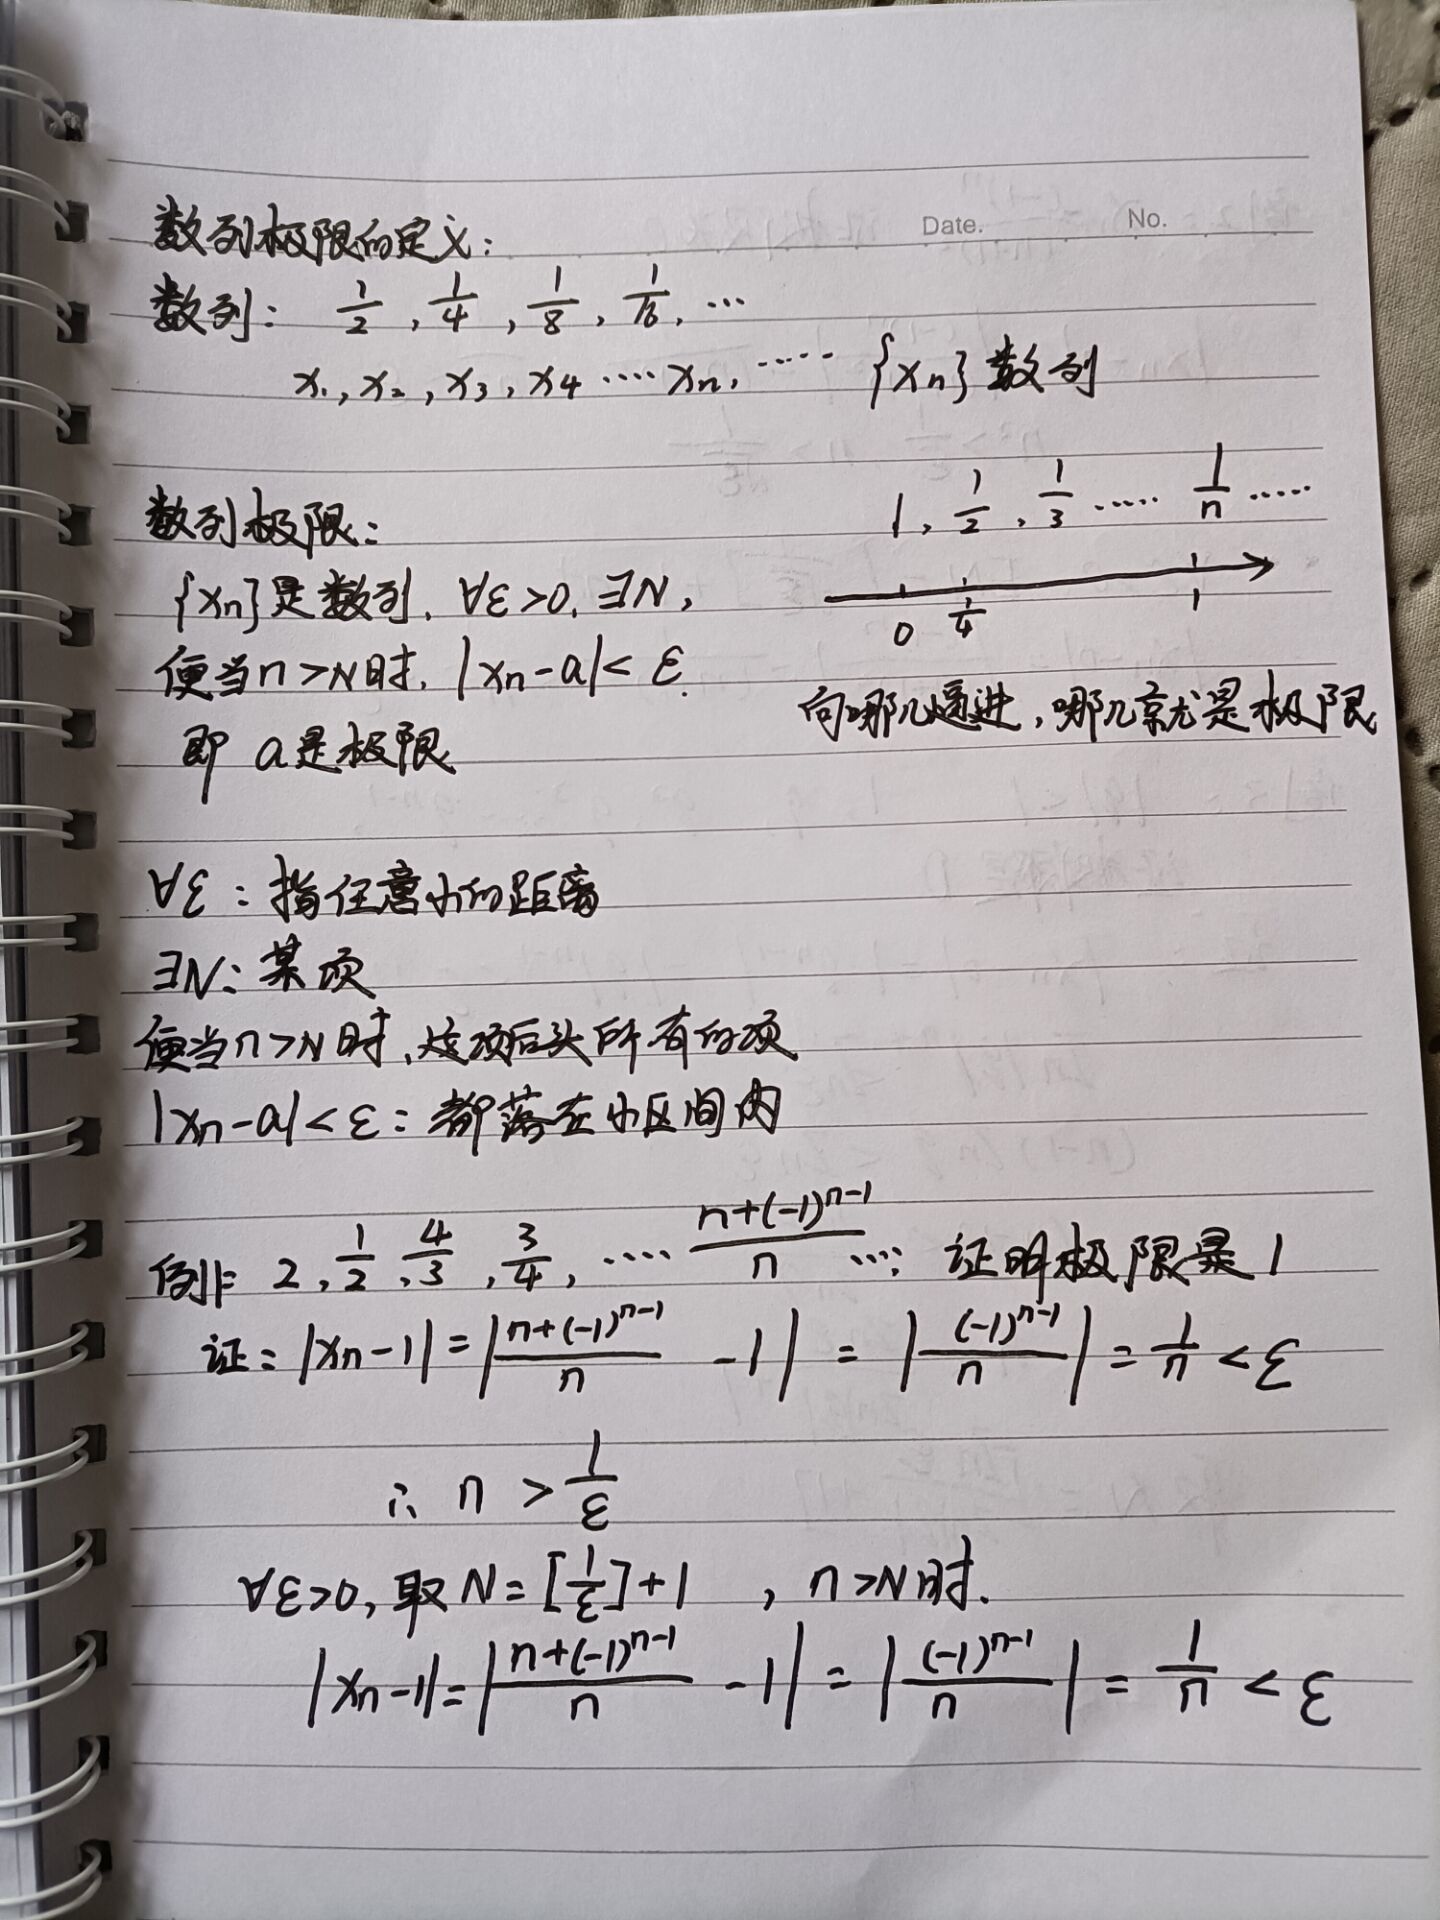 Date. No.
数列极限的定义:
数列: 1/2, 1/4, 1/8, 1/16, ...
x₁, x₂, x₃, x₄ .... xₙ, ..... {xₙ} 数列
数列极限:
1, 1/2, 1/3 ..... 1/n .....
{xₙ}是数列, ∀ε>0, ∃N,
0 1/4 1
使当n>N时, |xₙ-a|<ε.
向哪儿逼进,哪儿就是极限
即 a是极限
∀ε:指任意小的距离
∃N:某项
使当n>N时,这项后头所有的项
|xₙ-a|<ε:都落在小区间内
例1: 2, 1/2, 4/3, 3/4, .... (n+(-1)ⁿ⁻¹)/n ...; 证明极限是1
证: |xₙ-1| = |(n+(-1)ⁿ⁻¹)/n - 1| = |(-1)ⁿ⁻¹/n| = 1/n < ε
∴ n > 1/ε
∀ε>0, 取N=[1/ε]+1 , n>N时.
|xₙ-1| = |(n+(-1)ⁿ⁻¹)/n - 1| = |(-1)ⁿ⁻¹/n| = 1/n < ε